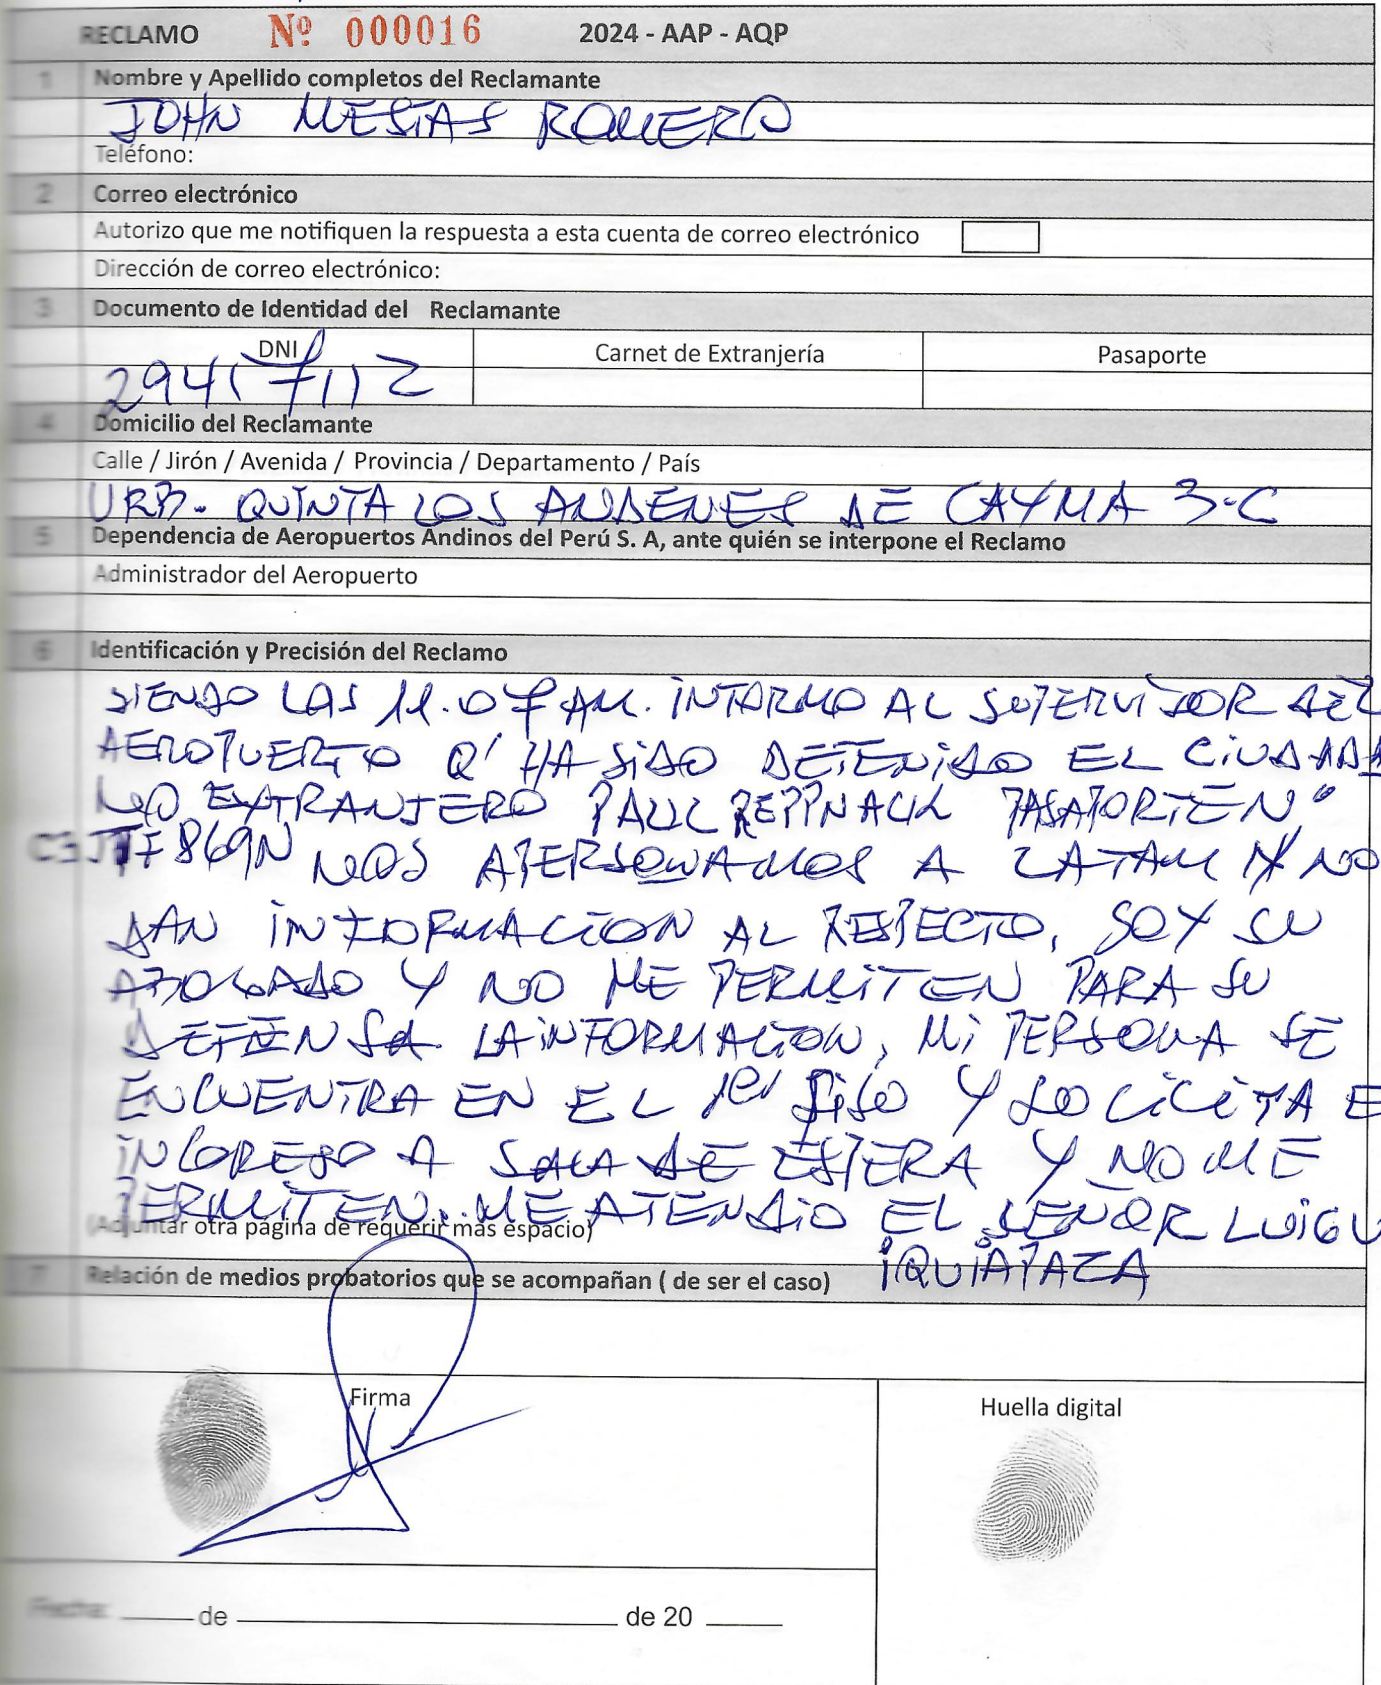 RECLAMO Nº 000016 2024 - AAP - AQP
1 Nombre y Apellido completos del Reclamante
JOHN MESIAS ROMERO
Teléfono:
2 Correo electrónico
Autorizo que me notifiquen la respuesta a esta cuenta de correo electrónico
Dirección de correo electrónico:
3 Documento de Identidad del Reclamante
DNI Carnet de Extranjería Pasaporte
29417112
4 Domicilio del Reclamante
Calle / Jirón / Avenida / Provincia / Departamento / País
URB. QUINTA LOS ANDENES DE CAYMA 3-C
5 Dependencia de Aeropuertos Andinos del Perú S. A, ante quién se interpone el Reclamo
Administrador del Aeropuerto
6 Identificación y Precisión del Reclamo
SIENDO LAS 11.07 AM. INFORMO AL SUPERVISOR DEL
AEROPUERTO Q' HA SIDO DETENIDO EL CIUDADA
NO EXTRANJERO PAUL REPPNACK PASAPORTE Nº
C3JTF869N NOS APERSONAMOS A LATAM Y NO
DAN INFORMACION AL RESPECTO, SOY SU
ABOGADO Y NO ME PERMITEN PARA SU
DEFENSA LA INFORMACION, MI PERSONA SE
ENCUENTRA EN EL 1er PISO Y SOLICITA E
INGRESO A SALA DE ESPERA Y NO ME
PERMITEN. ME ATENDIO EL SEÑOR LUIGU
(Adjuntar otra página de requerir más espacio)
IQUIAPAZA
7 Relación de medios probatorios que se acompañan ( de ser el caso)
Firma Huella digital
Fecha: de de 20